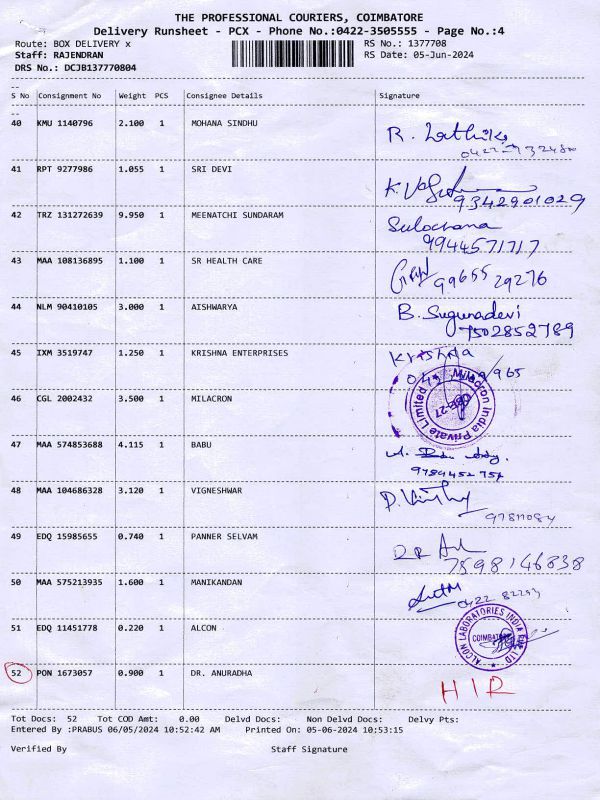 THE PROFESSIONAL COURIERS, COIMBATORE
Delivery Runsheet - PCX - Phone No.:0422-3505555 - Page No.:4
Route: BOX DELIVERY x RS No.: 1377708
Staff: RAJENDRAN RS Date: 05-Jun-2024
DRS No.: DCJB137770804
S No Consignment No Weight PCS Consignee Details Signature
40 KMU 1140796 2.100 1 MOHANA SINDHU
R.
41 RPT 9277986 1.055 1 SRI DEVI
9342901029
42 TRZ 131272639 9.950 1 MEENATCHI SUNDARAM
Sulochana
9944571717
43 MAA 108136895 1.100 1 SR HEALTH CARE
99655 29276
44 NLM 90410105 3.000 1 AISHWARYA
B. Sugunadevi
7502852789
45 IXM 3519747 1.250 1 KRISHNA ENTERPRISES
Krishna
46 CGL 2002432 3.500 1 MILACRON
Milacron India Private Limited
47 MAA 574853688 4.115 1 BABU
48 MAA 104686328 3.120 1 VIGNESHWAR
49 EDQ 15985655 0.740 1 PANNER SELVAM
7598146838
50 MAA 575213935 1.600 1 MANIKANDAN
0422
51 EDQ 11451778 0.220 1 ALCON
ALCON LABORATORIES INDIA PVT LTD
COIMBATORE
52 PON 1673057 0.900 1 DR. ANURADHA
HIR
Tot Docs: 52 Tot COD Amt: 0.00 Delvd Docs: Non Delvd Docs: Delvy Pts:
Entered By :PRABUS 06/05/2024 10:52:42 AM Printed On: 05-06-2024 10:53:15
Verified By Staff Signature